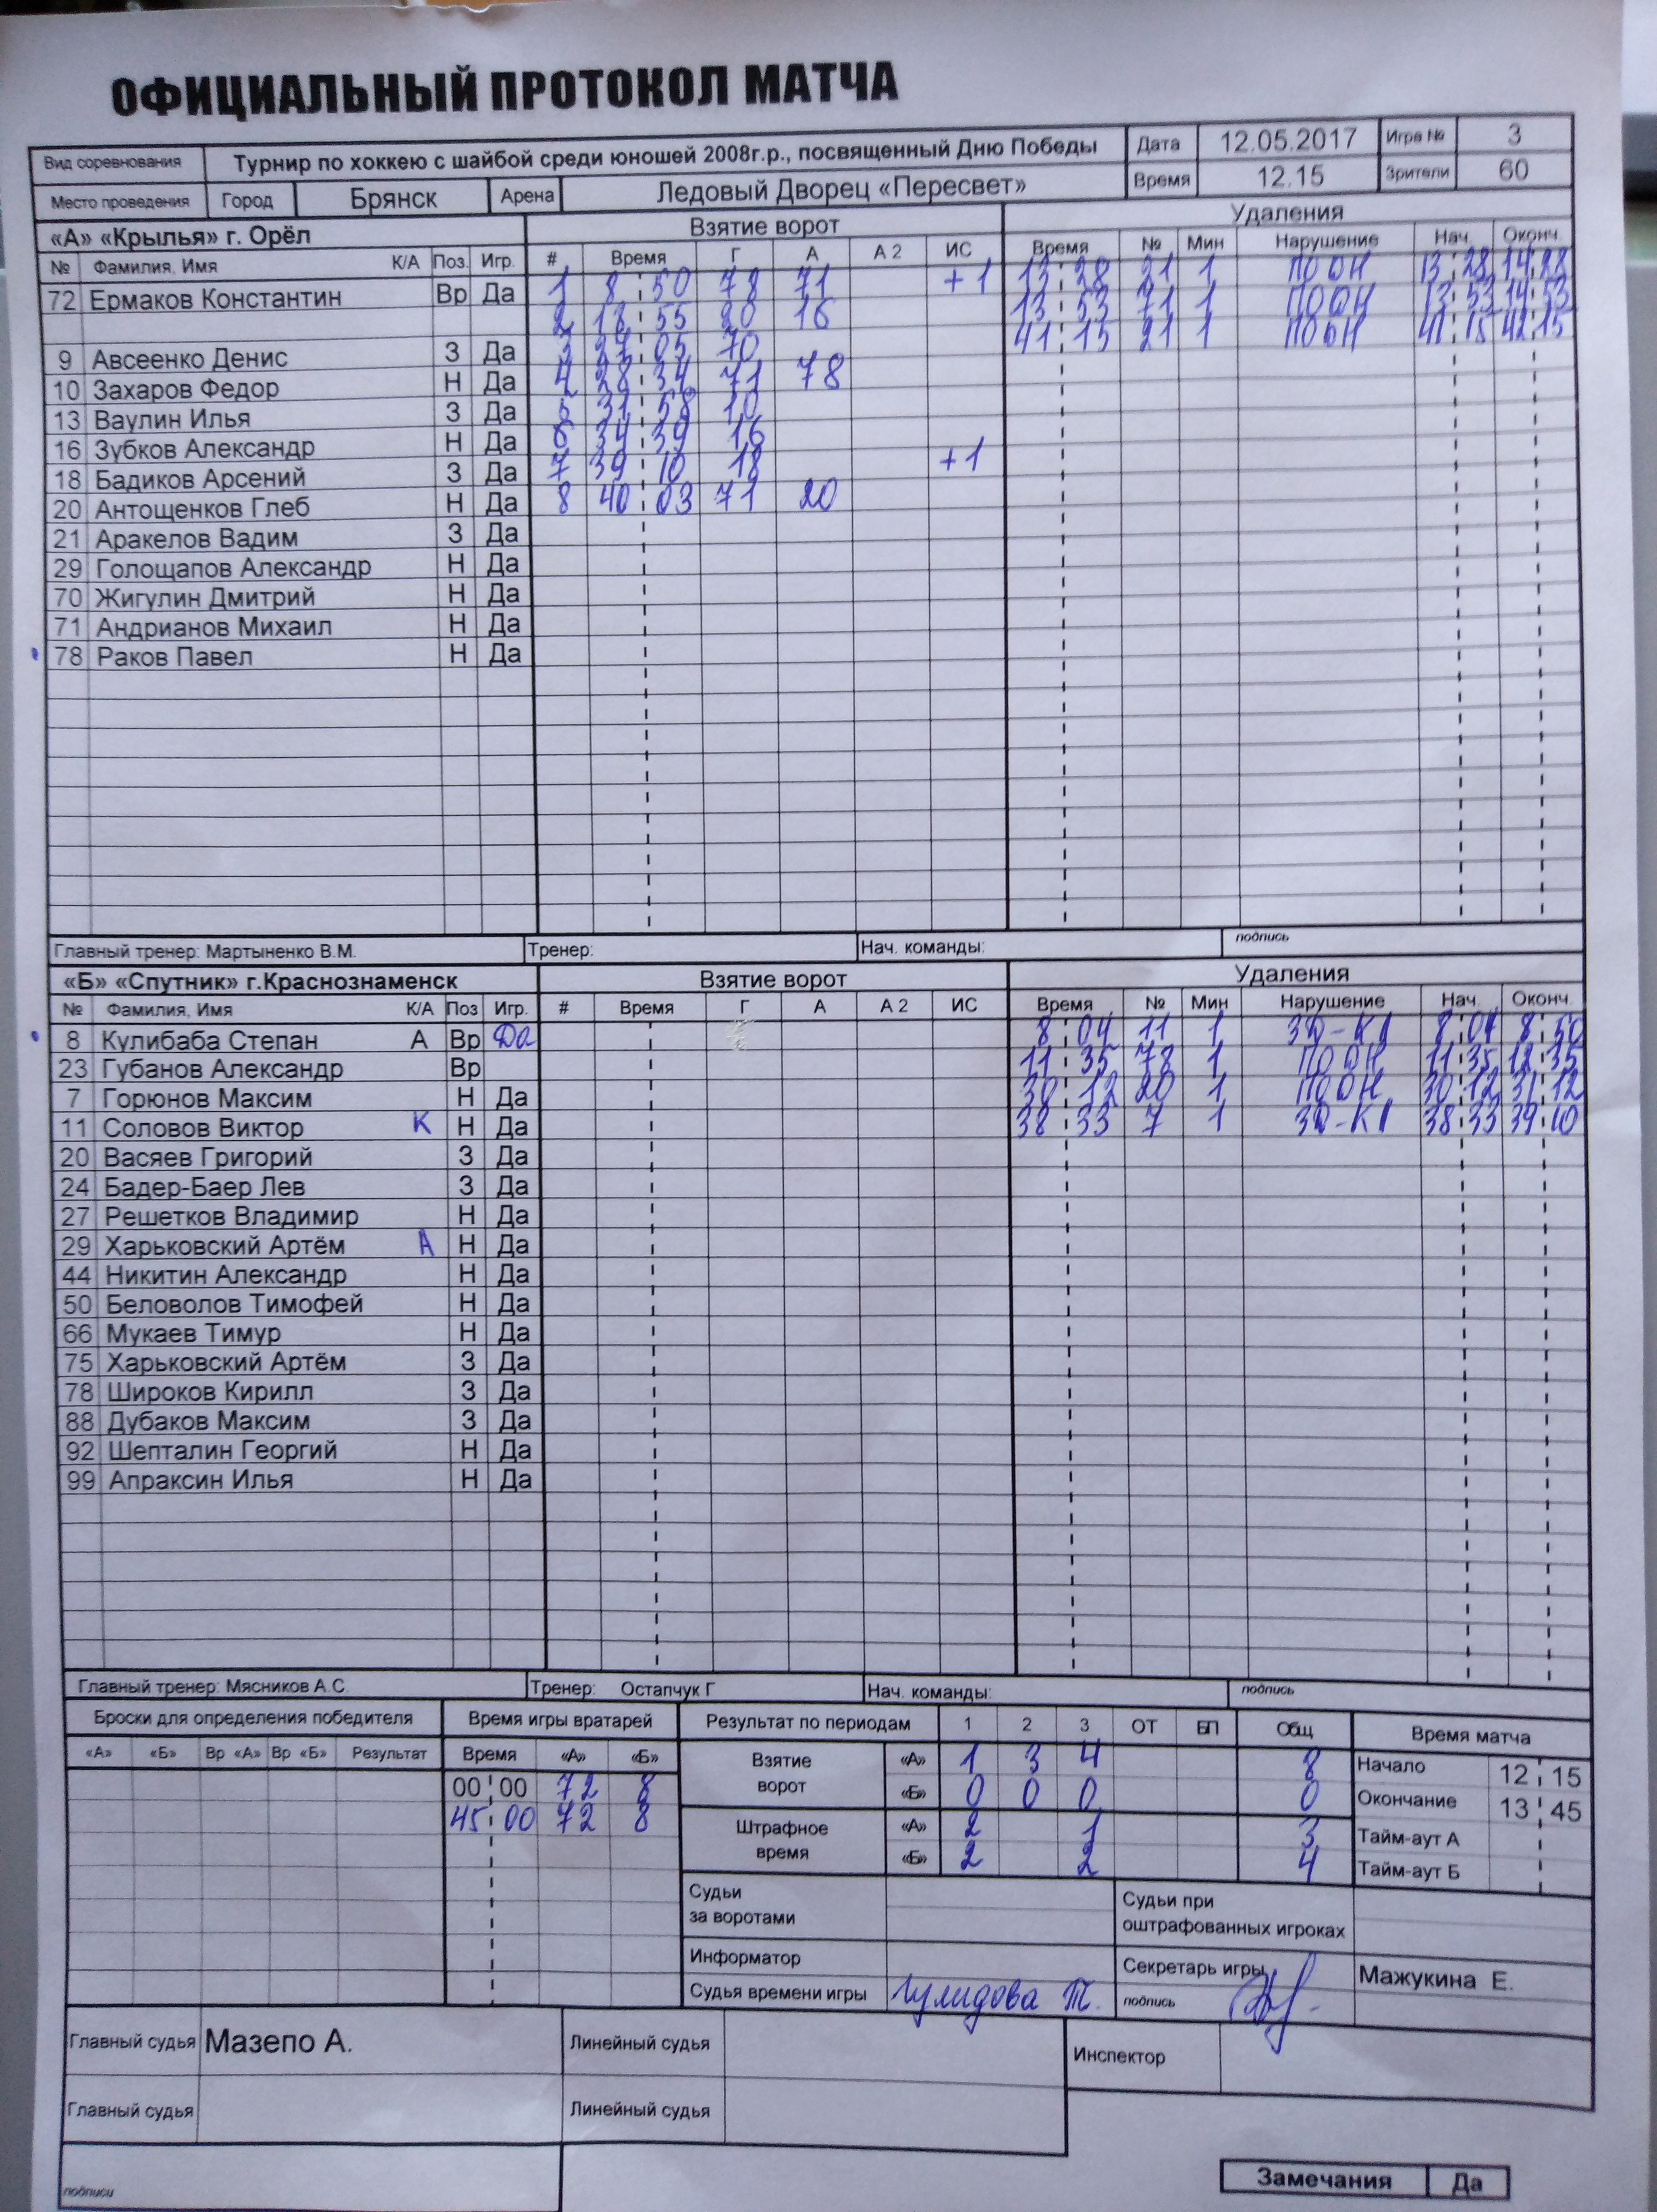 ОФИЦИАЛЬНЫЙ ПРОТОКОЛ МАТЧА
Вид соревнования Турнир по хоккею с шайбой среди юношей 2008г.р., посвященный Дню Победы Дата 12.05.2017 Игра № 3
Место проведения Город Брянск Арена Ледовый Дворец «Пересвет» Время 12.15 Зрители 60
«А» «Крылья» г. Орёл Взятие ворот Удаления
№ Фамилия, Имя К/А Поз. Игр. # Время Г А А 2 ИС Время № Мин Нарушение Нач. Оконч.
72 Ермаков Константин Вр Да 1 8 50 78 71 +1 13 28 21 1 ПООН 13 28 14 28
2 18 55 20 16 13 53 71 1 ПООН 13 53 14 53
9 Авсеенко Денис З Да 3 27 05 70 41 15 21 1 ПООН 41 15 42 15
10 Захаров Федор Н Да 4 28 34 71 78
13 Ваулин Илья З Да 5 31 58 10
16 Зубков Александр Н Да 6 34 39 16
18 Бадиков Арсений З Да 7 39 10 18 +1
20 Антощенков Глеб Н Да 8 40 03 71 20
21 Аракелов Вадим З Да
29 Голощапов Александр Н Да
70 Жигулин Дмитрий Н Да
71 Андрианов Михаил Н Да
78 Раков Павел Н Да
Главный тренер: Мартыненко В.М. Тренер: Нач. команды: подпись
«Б» «Спутник» г.Краснознаменск Взятие ворот Удаления
№ Фамилия, Имя К/А Поз Игр. # Время Г А А 2 ИС Время № Мин Нарушение Нач. Оконч.
8 Кулибаба Степан А Вр Да 8 04 11 1 ЗД-КЛ 8 04 8 50
23 Губанов Александр Вр 11 35 78 1 ПООН 11 35 12 35
7 Горюнов Максим Н Да 30 12 20 1 ПООН 30 12 31 12
11 Соловов Виктор К Н Да 38 33 7 1 ЗД-КЛ 38 33 39 10
20 Васяев Григорий З Да
24 Бадер-Баер Лев З Да
27 Решетков Владимир Н Да
29 Харьковский Артём А Н Да
44 Никитин Александр Н Да
50 Беловолов Тимофей Н Да
66 Мукаев Тимур Н Да
75 Харьковский Артём З Да
78 Широков Кирилл З Да
88 Дубаков Максим З Да
92 Шепталин Георгий Н Да
99 Апраксин Илья Н Да
Главный тренер: Мясников А.С. Тренер: Остапчук Г Нач. команды: подпись
Броски для определения победителя Время игры вратарей Результат по периодам 1 2 3 ОТ БП Общ Время матча
«А» «Б» Вр «А» Вр «Б» Результат Время «А» «Б» Взятие ворот «А» 1 3 4 8 Начало 12 15
00 00 72 8 «Б» 0 0 0 0 Окончание 13 45
45 00 72 8 Штрафное время «А» 2 1 3 Тайм-аут А
«Б» 2 2 4 Тайм-аут Б
Судьи за воротами Судьи при оштрафованных игроках
Информатор Секретарь игры Мажукина Е.
Судья времени игры Гулидова Т. подпись
Главный судья Мазепо А. Линейный судья Инспектор
Главный судья Линейный судья
подписи
Замечания Да